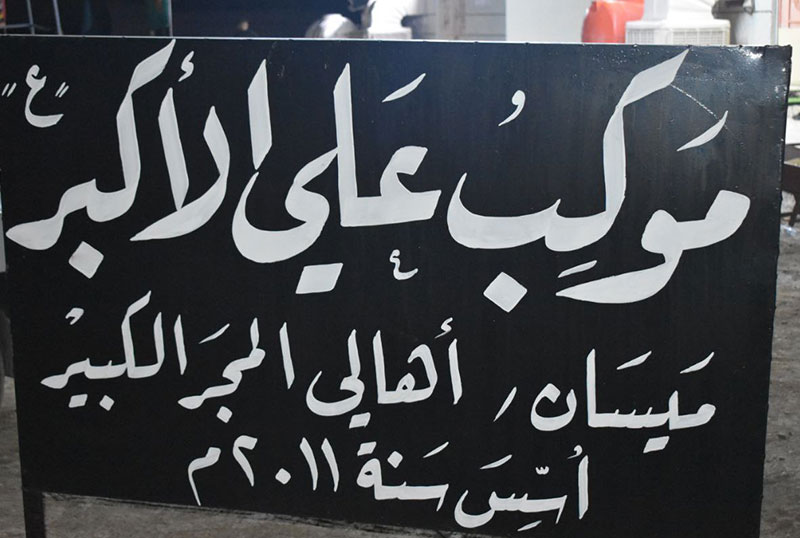 مَوكِبُ عَلي الأكبر "ع"
مَيسَان / أهالي المجَر الكبيْر
أُسِّسَ سَنة ٢٠١١ م